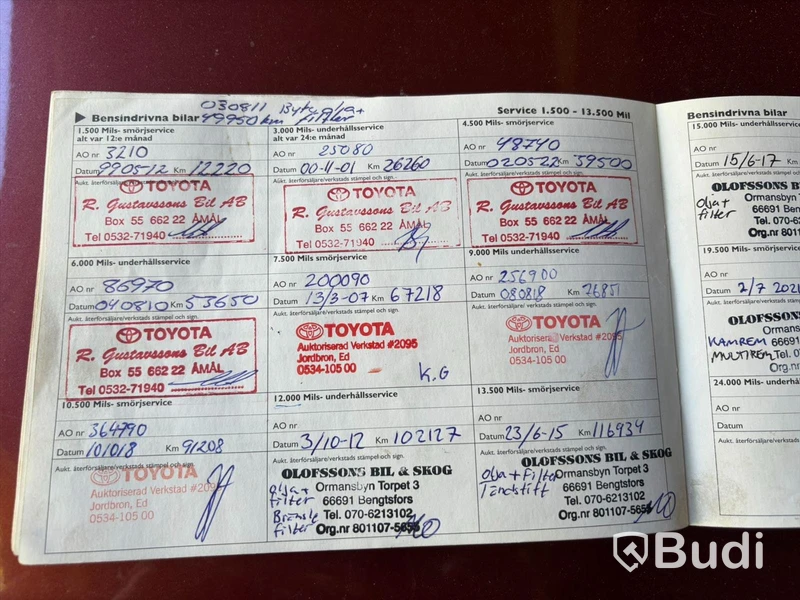 030811 Byte olja +
49950 km filter
▶ Bensindrivna bilar
Service 1.500 - 13.500 Mil
1.500 Mils- smörjservice
alt var 12:e månad
AO nr 3210
Datum 990512 Km 12220
Aukt. återförsäljare/verkstads stämpel och sign.
TOYOTA
R. Gustavssons Bil AB
Box 55 662 22 ÅMÅL
Tel 0532-71940
3.000 Mils- underhållsservice
alt var 24:e månad
AO nr 25080
Datum 00-11-01 Km 26260
Aukt. återförsäljare/verkstads stämpel och sign.
TOYOTA
R. Gustavssons Bil AB
Box 55 662 22 ÅMÅL
Tel 0532-71940
4.500 Mil- smörjservice
AO nr 48740
Datum 020522 Km 39500
Aukt. återförsäljare/verkstads stämpel och sign.
TOYOTA
R. Gustavssons Bil AB
Box 55 662 22 ÅMÅL
Tel 0532-71940
6.000 Mil- underhållsservice
AO nr 86970
Datum 040810 Km 53650
Aukt. återförsäljare/verkstads stämpel och sign.
TOYOTA
R. Gustavssons Bil AB
Box 55 662 22 ÅMÅL
Tel 0532-71940
7.500 Mil- smörjservice
AO nr 200090
Datum 13/3-07 Km 67218
Aukt. återförsäljare/verkstads stämpel och sign.
TOYOTA
Auktoriserad Verkstad #2095
Jordbron, Ed
0534-105 00
K.G
9.000 Mil- underhållsservice
AO nr 256900
Datum 080818 Km 76851
Aukt. återförsäljare/verkstads stämpel och sign.
TOYOTA
Auktoriserad Verkstad #2095
Jordbron, Ed
0534-105 00
10.500 Mil- smörjservice
AO nr 364790
Datum 101018 Km 91208
Aukt. återförsäljare/verkstads stämpel och sign.
TOYOTA
Auktoriserad Verkstad #2095
Jordbron, Ed
0534-105 00
12.000 Mil- underhållsservice
AO nr
Datum 3/10-12 Km 102127
Aukt. återförsäljare/verkstads stämpel och sign.
OLOFSSONS BIL & SKOG
Ormansbyn Torpet 3
66691 Bengtsfors
Tel. 070-6213102
Org.nr 801107-5655
olja +
filter
Bränsle
filter
13.500 Mil- smörjservice
AO nr
Datum 23/6-15 Km 116934
Aukt. återförsäljare/verkstads stämpel och sign.
OLOFSSONS BIL & SKOG
Ormansbyn Torpet 3
66691 Bengtsfors
Tel. 070-6213102
Org.nr 801107-5655
olja + filter
Tändstift
Bensindrivna bilar
15.000 Mil-
AO nr
Datum 15/6-17 Km
Aukt. återförsäljare/verkstads
OLOFSSONS
Ormansby
66691 Be
Tel. 070-62
Org.nr 8011
olja +
filter
19.500 Mil-
AO nr
Datum 2/7 2021
Aukt. återförsäljare/verkstads
OLOFSSONS
Ormansb
66691 B
Tel. 070-6
Org.nr 80
KAMREM
MULTIREM
24.000 Mil-
AO nr
Datum
Aukt. återförsäljare/verkstads
Budi